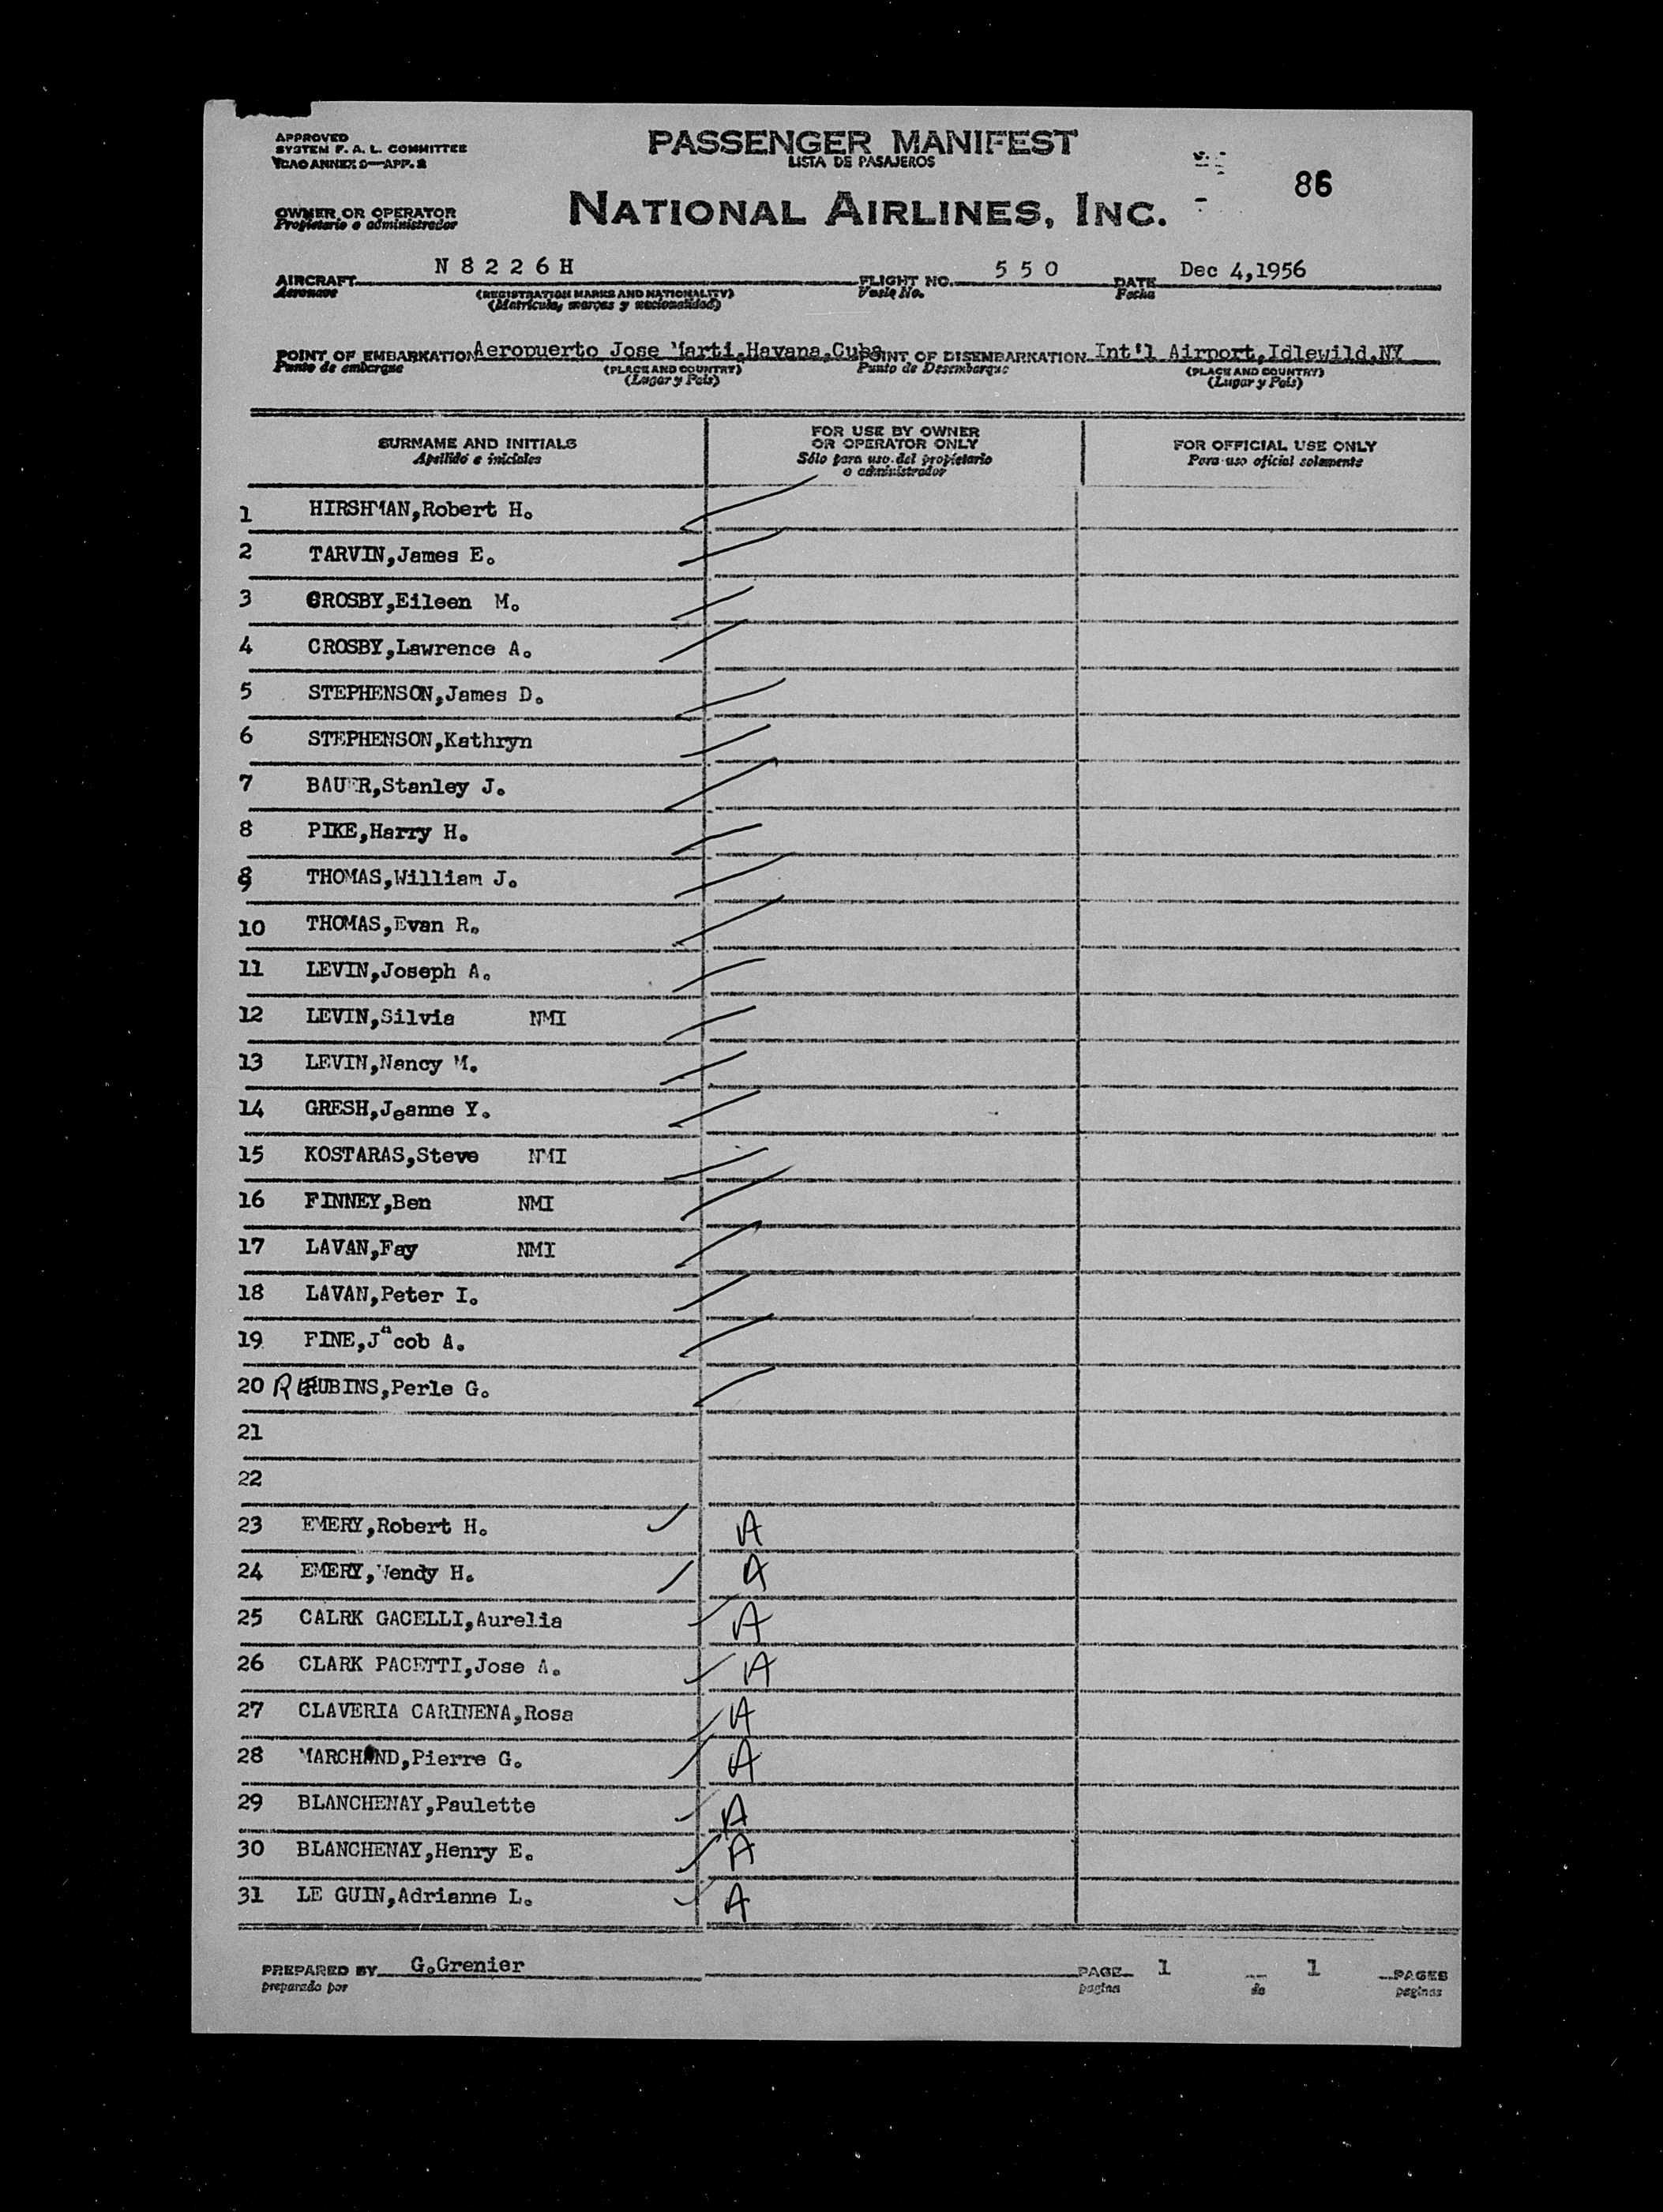 APPROVED
SYSTEM F. A. L. COMMITTEE
ICAO ANNEX 9—APP. 2
PASSENGER MANIFEST
LISTA DE PASAJEROS
86
OWNER OR OPERATOR
Propietario o administrador
NATIONAL AIRLINES, INC.
AIRCRAFT N 8 2 2 6 H FLIGHT NO. 5 5 0 DATE Dec 4,1956
Aeronave (REGISTRATION MARKS AND NATIONALITY) Vuelo No. Fecha
(Matricula, marcas y nacionalidad)
POINT OF EMBARKATION Aeropuerto Jose Marti,Havana,Cuba POINT OF DISEMBARKATION Int'l Airport,Idlewild,NY
Punto de embarque (PLACE AND COUNTRY) Punto de Desembarque (PLACE AND COUNTRY)
(Lugar y Pais) (Lugar y Pais)
SURNAME AND INITIALS
Apellido e iniciales
FOR USE BY OWNER
OR OPERATOR ONLY
Sólo para uso del propietario
o administrador
FOR OFFICIAL USE ONLY
Para uso oficial solamente
1 HIRSHMAN,Robert H.
2 TARVIN,James E.
3 CROSBY,Eileen M.
4 CROSBY,Lawrence A.
5 STEPHENSON,James D.
6 STEPHENSON,Kathryn
7 BAUER,Stanley J.
8 PIKE,Harry H.
9 THOMAS,William J.
10 THOMAS,Evan R.
11 LEVIN,Joseph A.
12 LEVIN,Silvia NMI
13 LEVIN,Nancy M.
14 GRESH,Jeanne Y.
15 KOSTARAS,Steve NMI
16 FINNEY,Ben NMI
17 LAVAN,Fay NMI
18 LAVAN,Peter I.
19 FINE,Jacob A.
20 RUBINS,Perle G.
21
22
23 EMERY,Robert H. A
24 EMERY,Wendy H. A
25 CALRK GACELLI,Aurelia A
26 CLARK PACETTI,Jose A. A
27 CLAVERIA CARINENA,Rosa A
28 MARCHAND,Pierre G. A
29 BLANCHENAY,Paulette A
30 BLANCHENAY,Henry E. A
31 LE GUIN,Adrianne L. A
PREPARED BY G.Grenier PAGE 1 1 PAGES
preparado por pagina de paginas